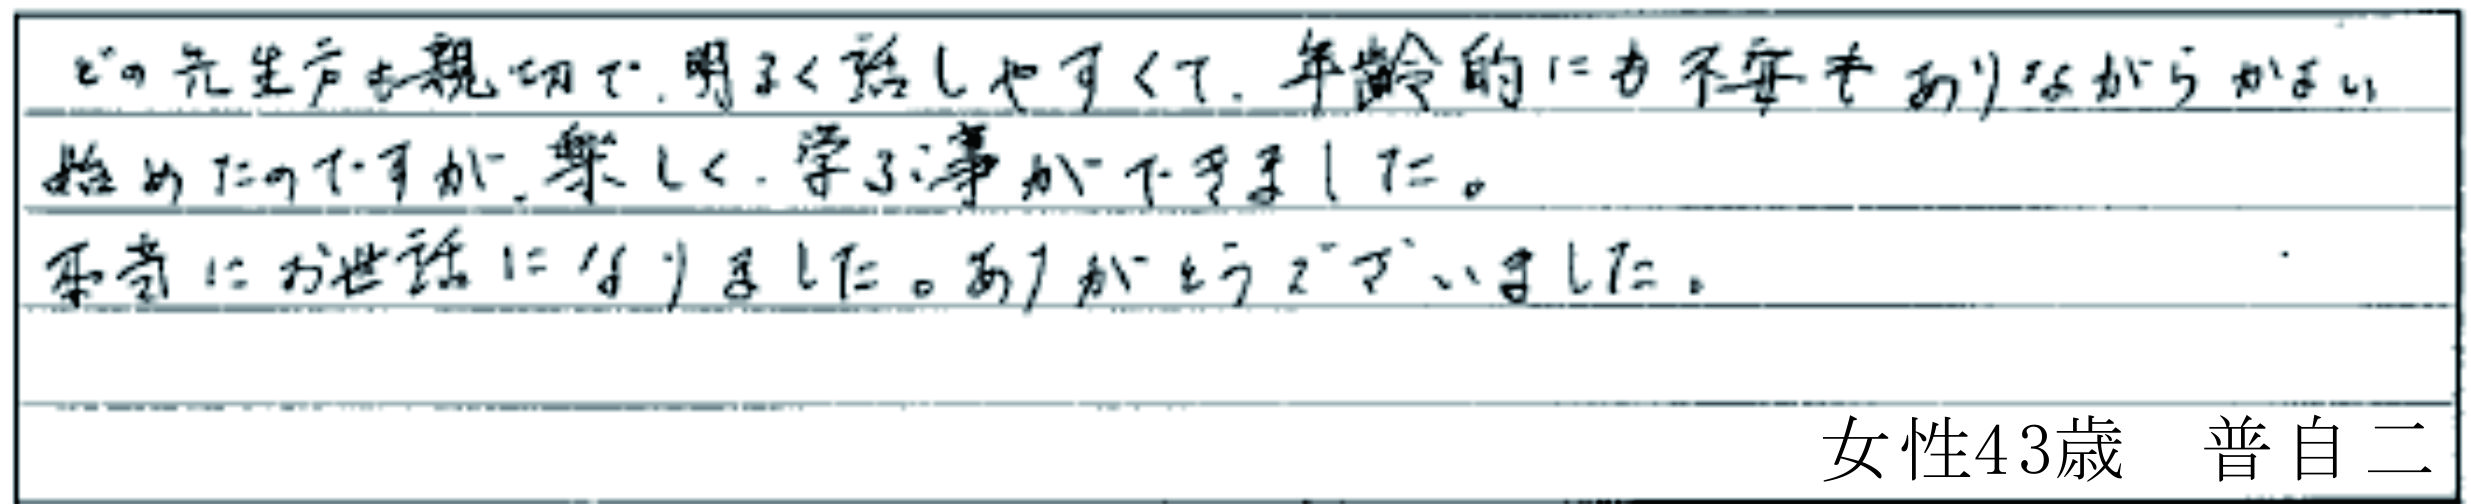 どの先生方も親切で、明るく話しやすくて、年齢的にも不安もありながらかよい
始めたのですが、楽しく、学ぶ事ができました。
本当にお世話になりました。ありがとうございました。
女性43歳　普自二